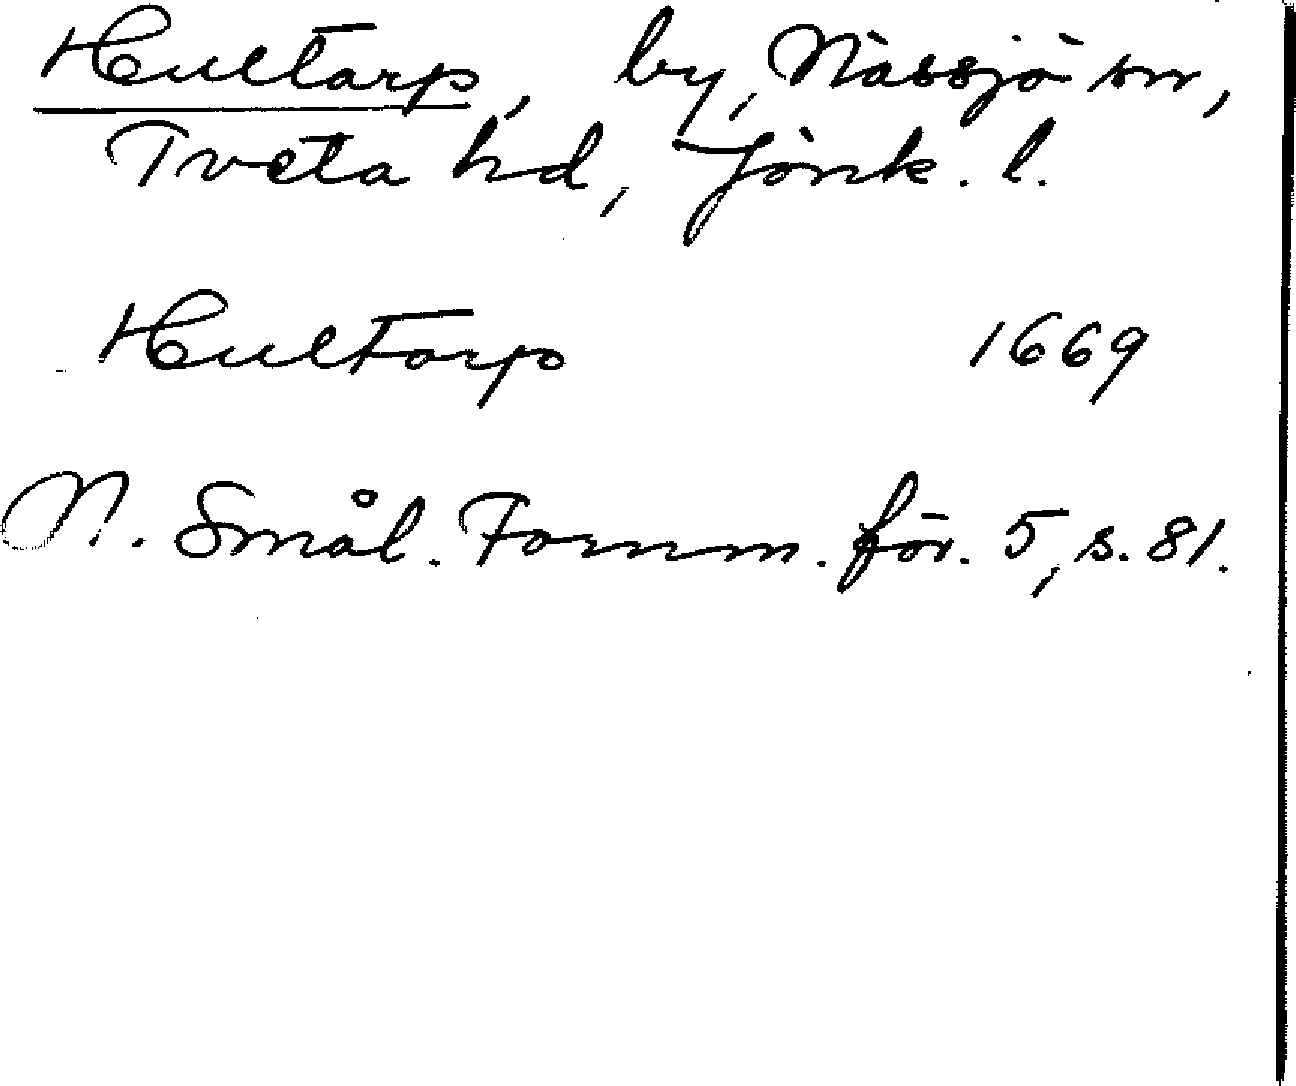 Hultarp, by, Nässjö sn,
Tveta hd, Jönk. l.
Hultarp 1669
N. Smål. Fornm. för. 5, s. 81.